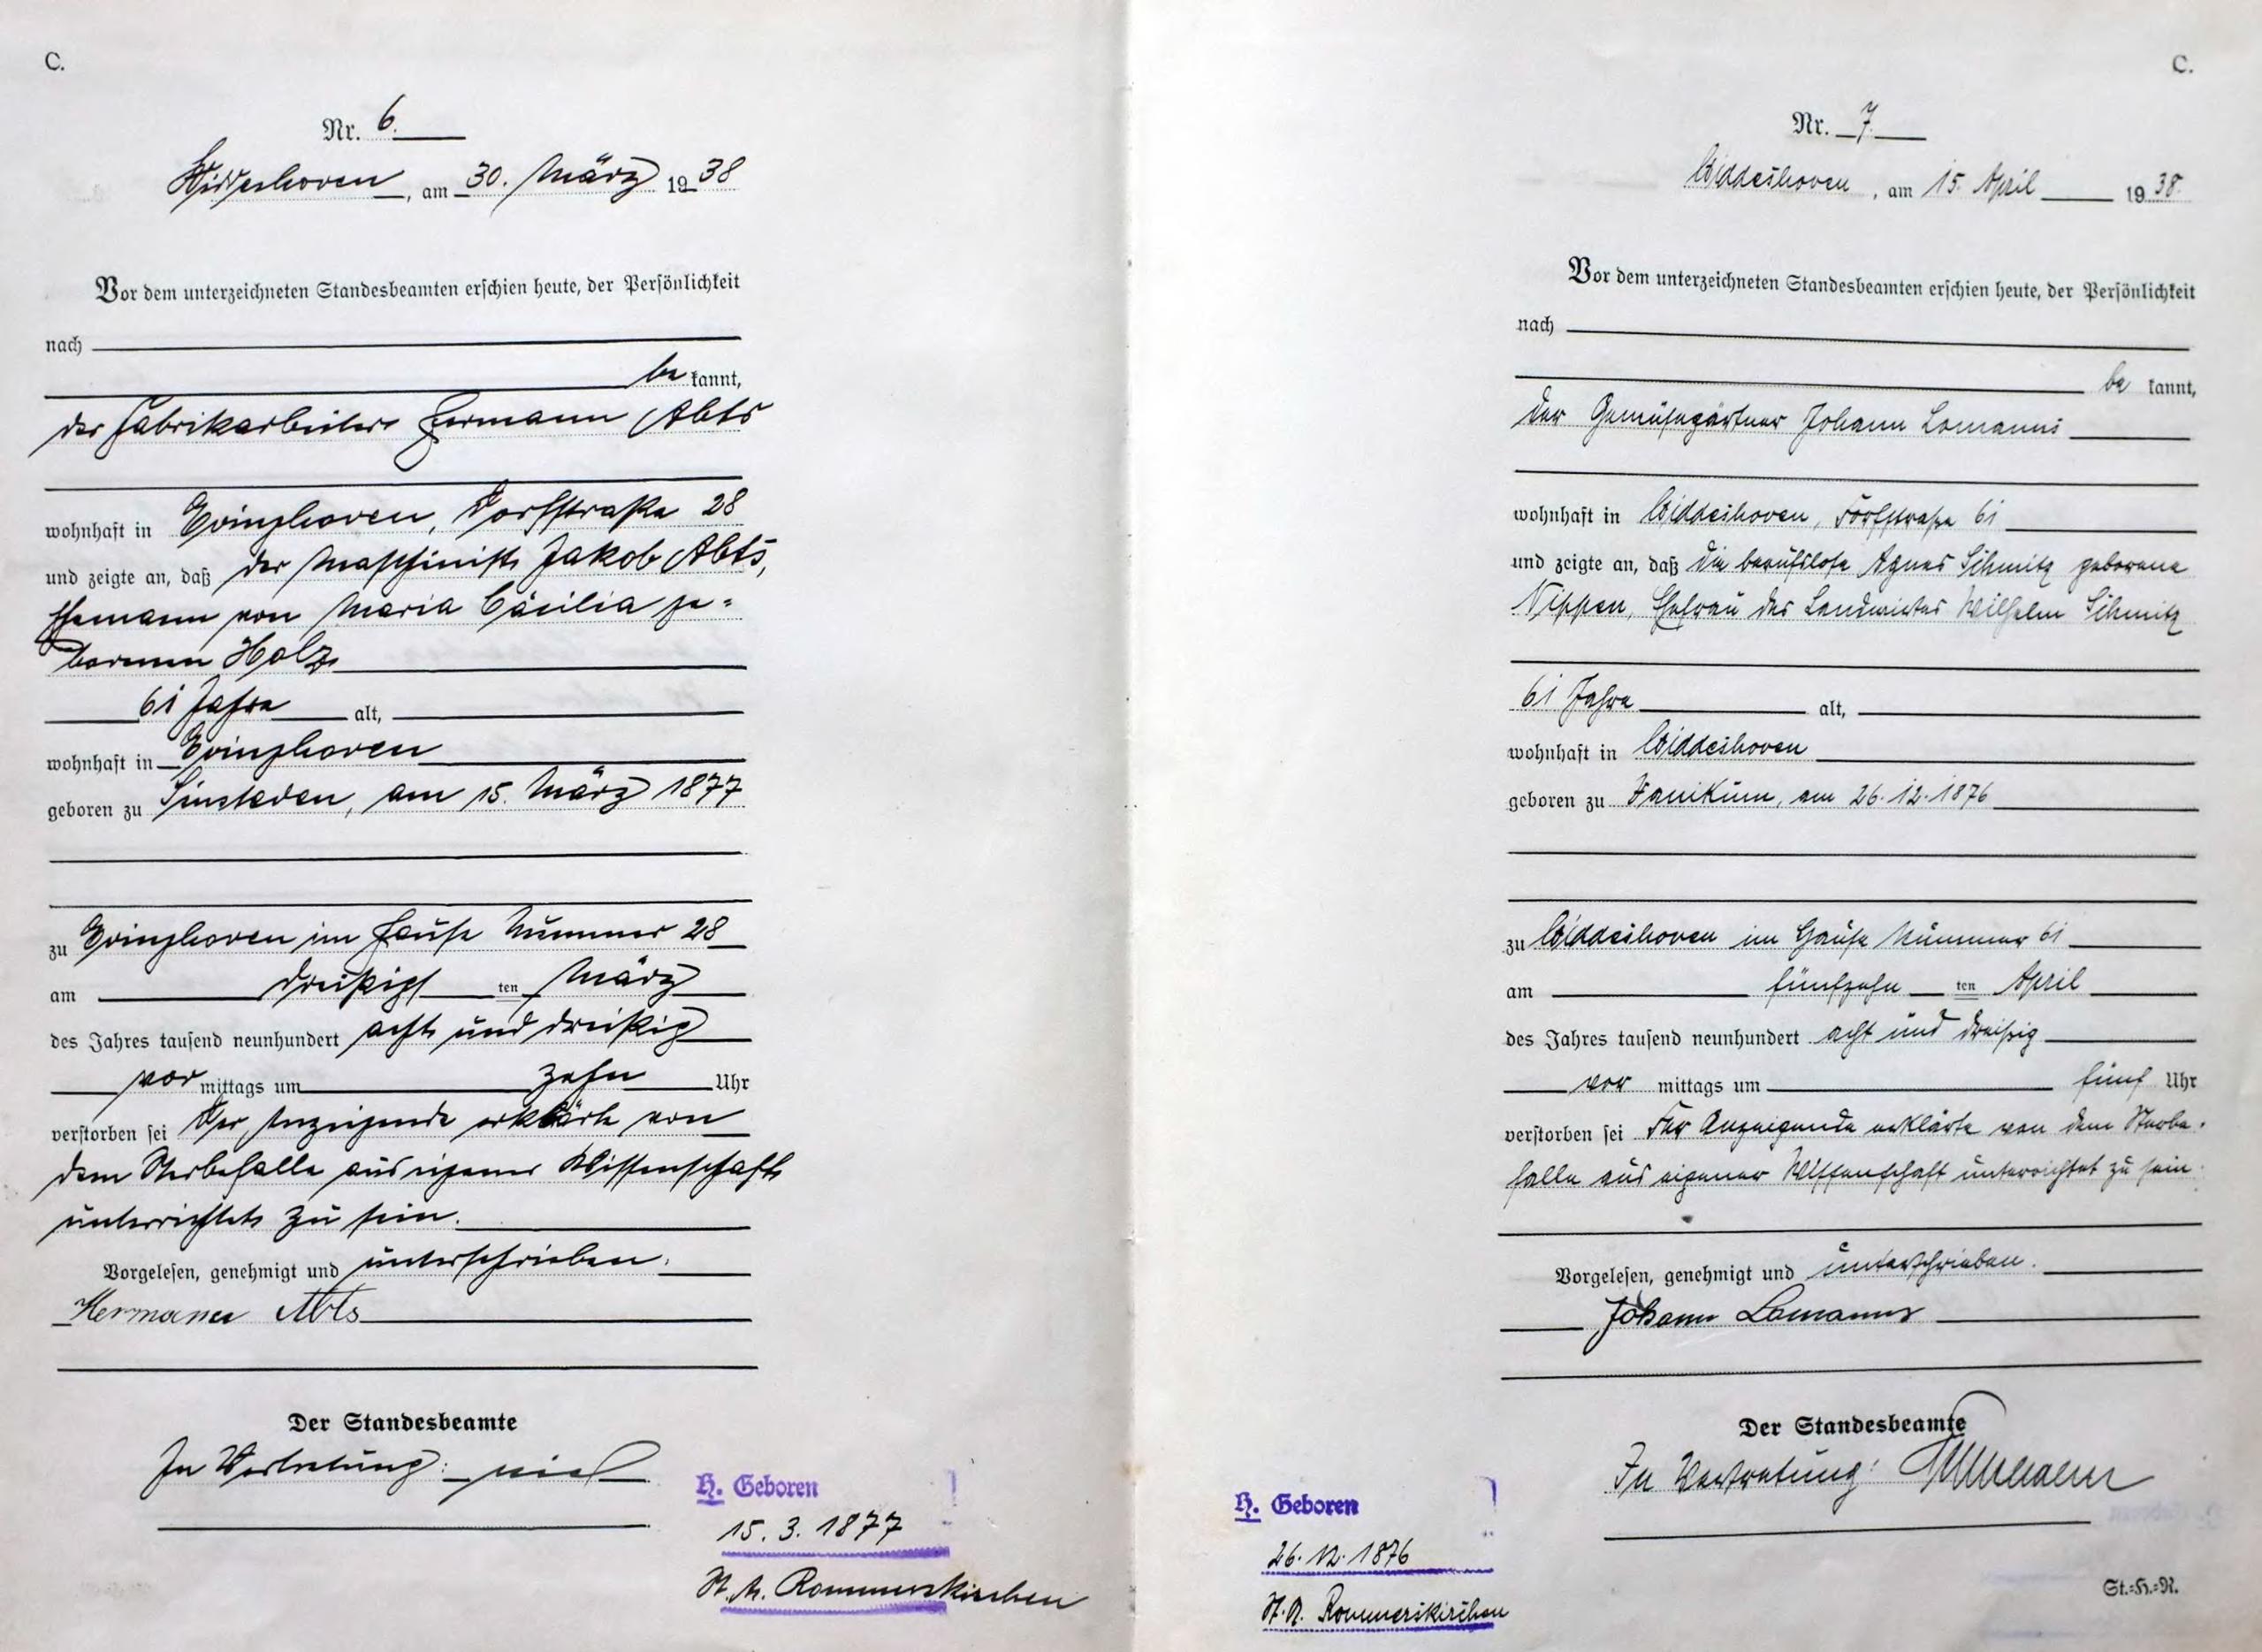 C.
Nr. 6.
Widdeshoven, am 30. März 1938
Vor dem unterzeichneten Standesbeamten erschien heute, der Persönlichkeit
nach
be kannt,
der Fabrikarbeiter Hermann Abts
wohnhaft in Evinghoven, Dorfstraße 28
und zeigte an, daß der Maschinist Jakob Abts,
Ehemann von Maria Cäcilia ge-
borenen Holz
61 Jahre alt,
wohnhaft in Evinghoven
geboren zu Sinsteden, am 15. März 1877
zu Evinghoven im Hause Nummer 28
am dreißigsten März
des Jahres tausend neunhundert acht und dreißig
vor mittags um zehn Uhr
verstorben sei Der Anzeigende erklärte von
dem Sterbefalle aus eigener Wissenschaft
unterrichtet zu sein.
Vorgelesen, genehmigt und unterschrieben.
Hermann Abts
Der Standesbeamte
In Vertretung:
H. Geboren
15. 3. 1877
St. A. Rommerskirchen
C.
Nr. 7
Widdeshoven, am 15. April 1938.
Vor dem unterzeichneten Standesbeamten erschien heute, der Persönlichkeit
nach
be kannt,
der Gemüsegärtner Johann Lomanns
wohnhaft in Widdeshoven, Dorfstraße 61
und zeigte an, daß die berufslose Agnes Schmitz geborene
Nippen, Ehefrau des Landwirtes Wilhelm Schmitz
61 Jahre alt,
wohnhaft in Widdeshoven
geboren zu Vanikum, am 26.12.1876
zu Widdeshoven im Hause Nummer 61
am fünfzehn ten April
des Jahres tausend neunhundert acht und dreißig
vor mittags um fünf Uhr
verstorben sei Der Anzeigende erklärte von dem Sterbe-
falle aus eigener Wissenschaft unterrichtet zu sein.
Vorgelesen, genehmigt und unterschrieben.
Johann Lomanns
Der Standesbeamte
In Vertretung:
H. Geboren
26.12.1876
St. A. Rommerskirchen
St.=H.=N.